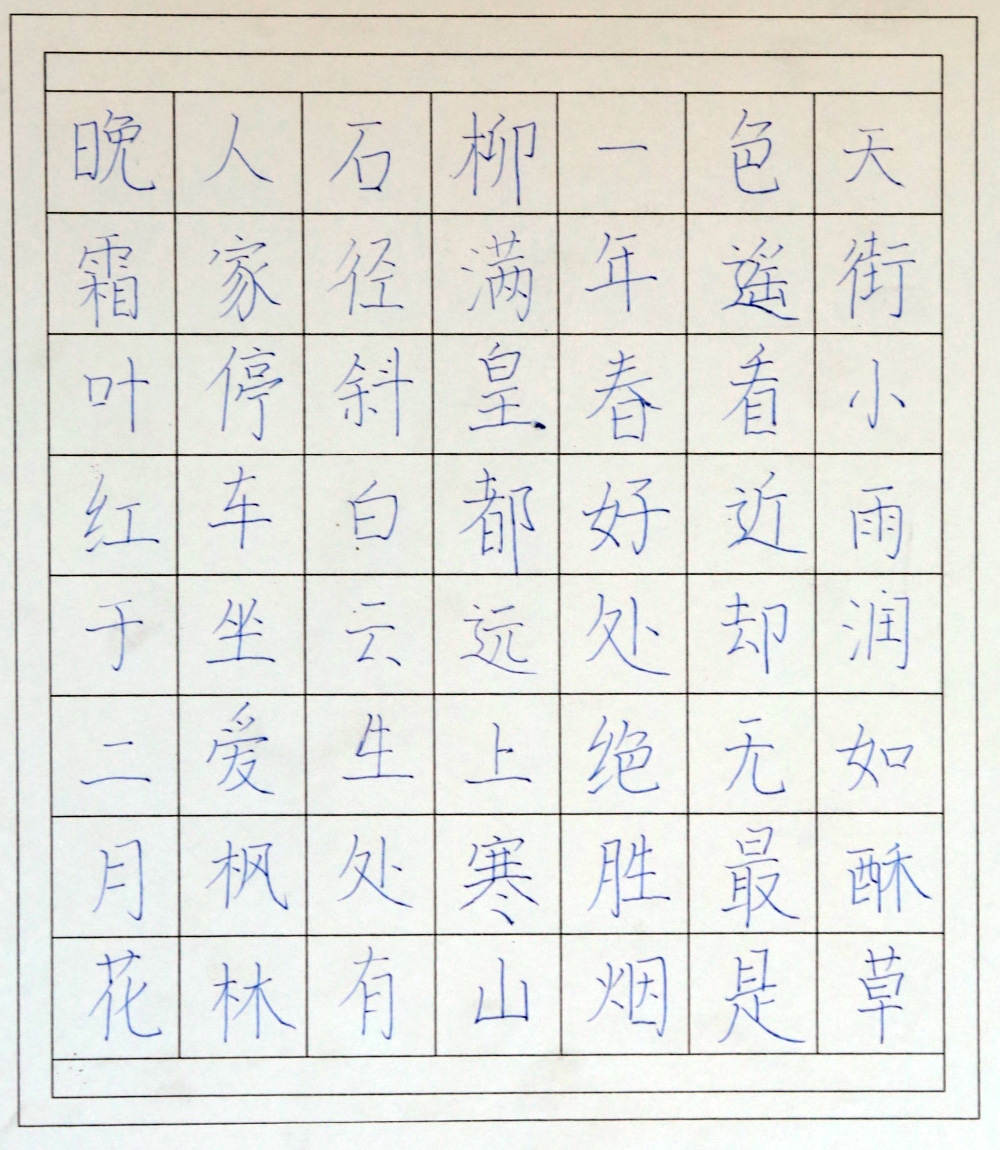 天街小雨润如酥草
色遥看近却无最是
一年春好处绝胜烟
柳满皇都远上寒山
石径斜白云生处有
人家停车坐爱枫林
晚霜叶红于二月花